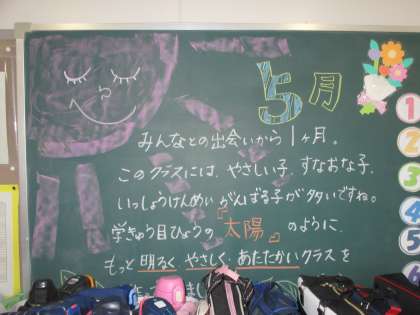 5月
みんなとの出会いから1ヶ月。
このクラスには、やさしい子、すなおな子、
いっしょうけんめいがんばる子が多いですね。
学きゅう目ひょうの『太陽』のように、
もっと明るく やさしく、あたたかいクラスを
1
2
3
4
5